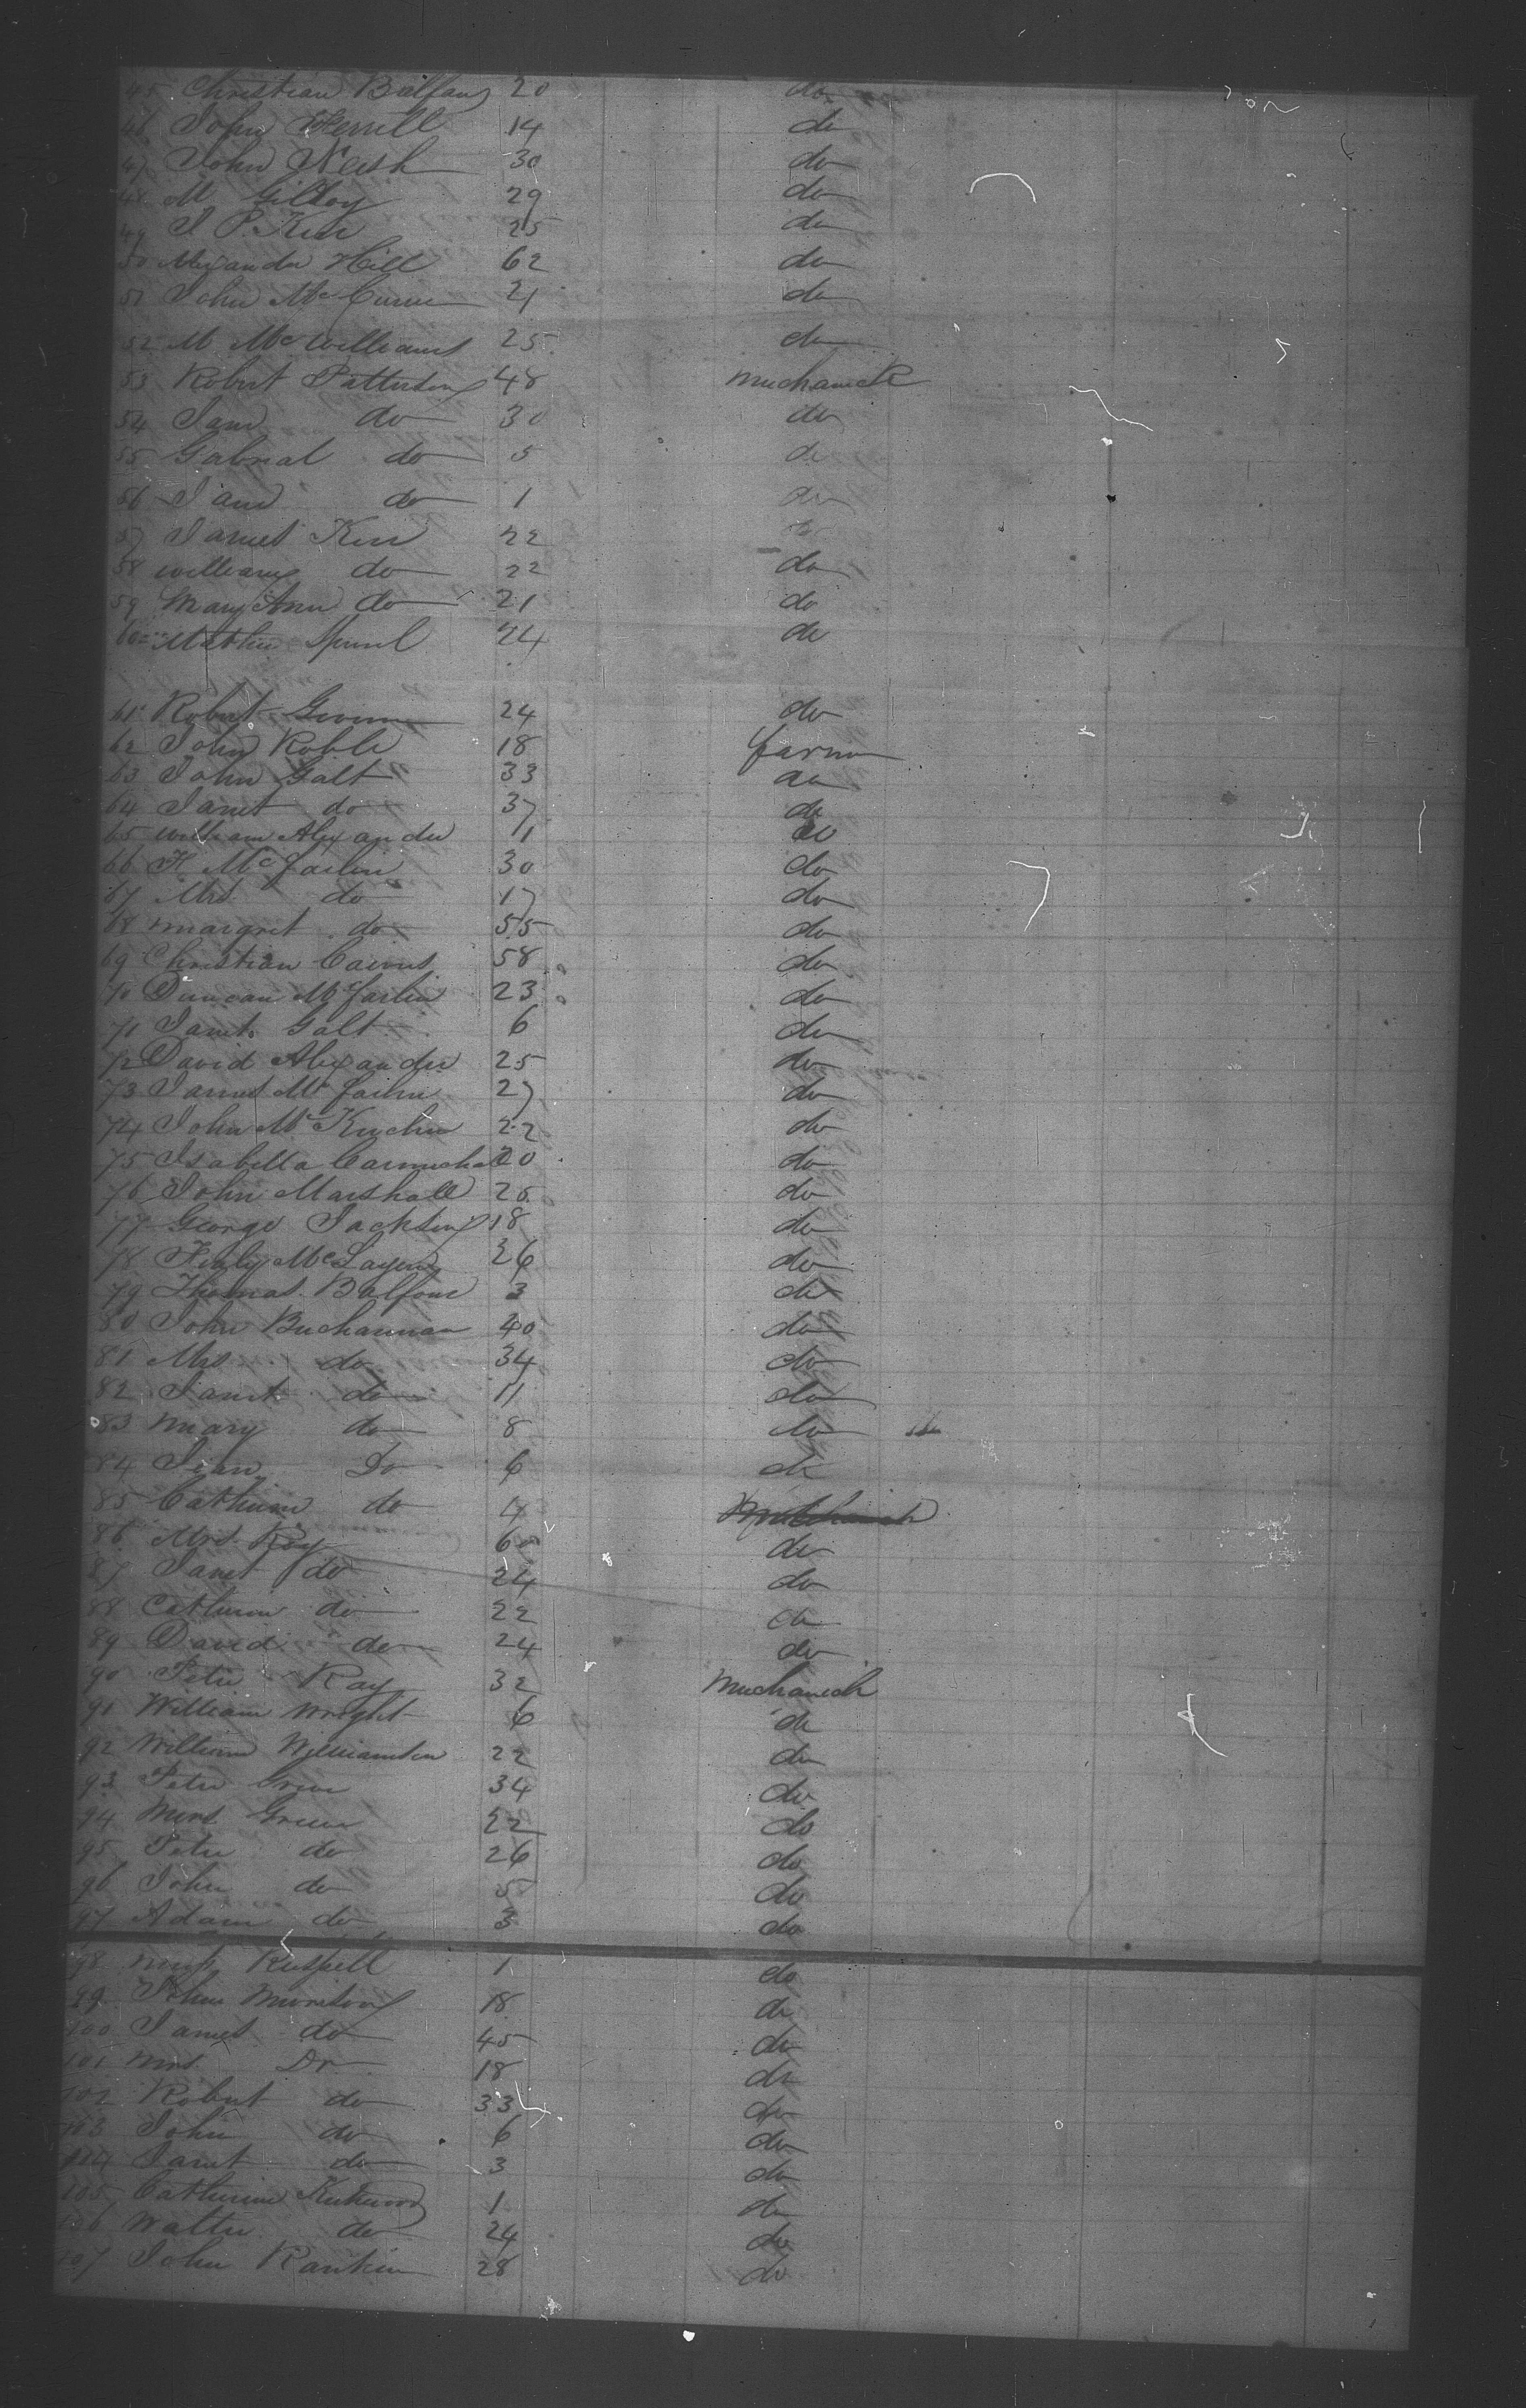 45 Christian Balfour 20 do
46 John Merrill 14 do
47 John Neish 30 do
48 M Gilloy 29 do
49 J P. Kerr 25 do
50 Alexander Hill 62 do
51 John McCunn 21 do
52 M McWilliams 25 do
53 Robert Patterson 48 Mechanick
54 Jam do 30 do
55 Gabrial do 5 do
56 Jam do 1 do
57 James Kerr 22
58 William do 22 do
59 Mary Ann do 21 do
60 Mathew 24 do
61 Robert 24 do
62 John Roble 18 farmer
63 John Galt 33 do
64 Janet do 37 do
65 William Alexander 11 do
66 H McFarlin 30 do
67 Mrs do 17 do
68 margret do 55 do
69 Christian Cairns 58 do
70 Duncan McFarlin 23 do
71 Janet Galt 6 do
72 David Alexander 25 do
73 James McFarlin 27 do
74 John McKuchn 22 do
75 Isabella Carmichal 20 do
76 John Marshall 25 do
77 George Jackson 18 do
78 Finly McLaren 26 do
79 Thomas Balfour 3 do
80 John Buchannan 40 do
81 Mrs do 34 do
82 Janet do 11 do
83 Mary do 8 do
84 Jean Do 6 do
85 Cathrine do 4 Mechanick
86 Mrs. Ray 60 do
87 Janet do 24 do
88 Catherin do 22 do
89 David do 24 do
90 Peter Ray 32 Mechanick
91 William Wright 6 do
92 William Williamson 22 do
93 Peter Greer 34 do
94 Mrs Greer 22 do
95 Peter do 26 do
96 John do 5 do
97 Adam do 3 do
98 Russell 1 do
99 John Morison 18 do
100 James do 45 do
101 Mrs Do 18 do
102 Robert do 33 do
103 John do 6 do
104 Janet do 3 do
105 Catherine Kirkwood 1 do
106 Walter do 24 do
107 John Rankin 28 do